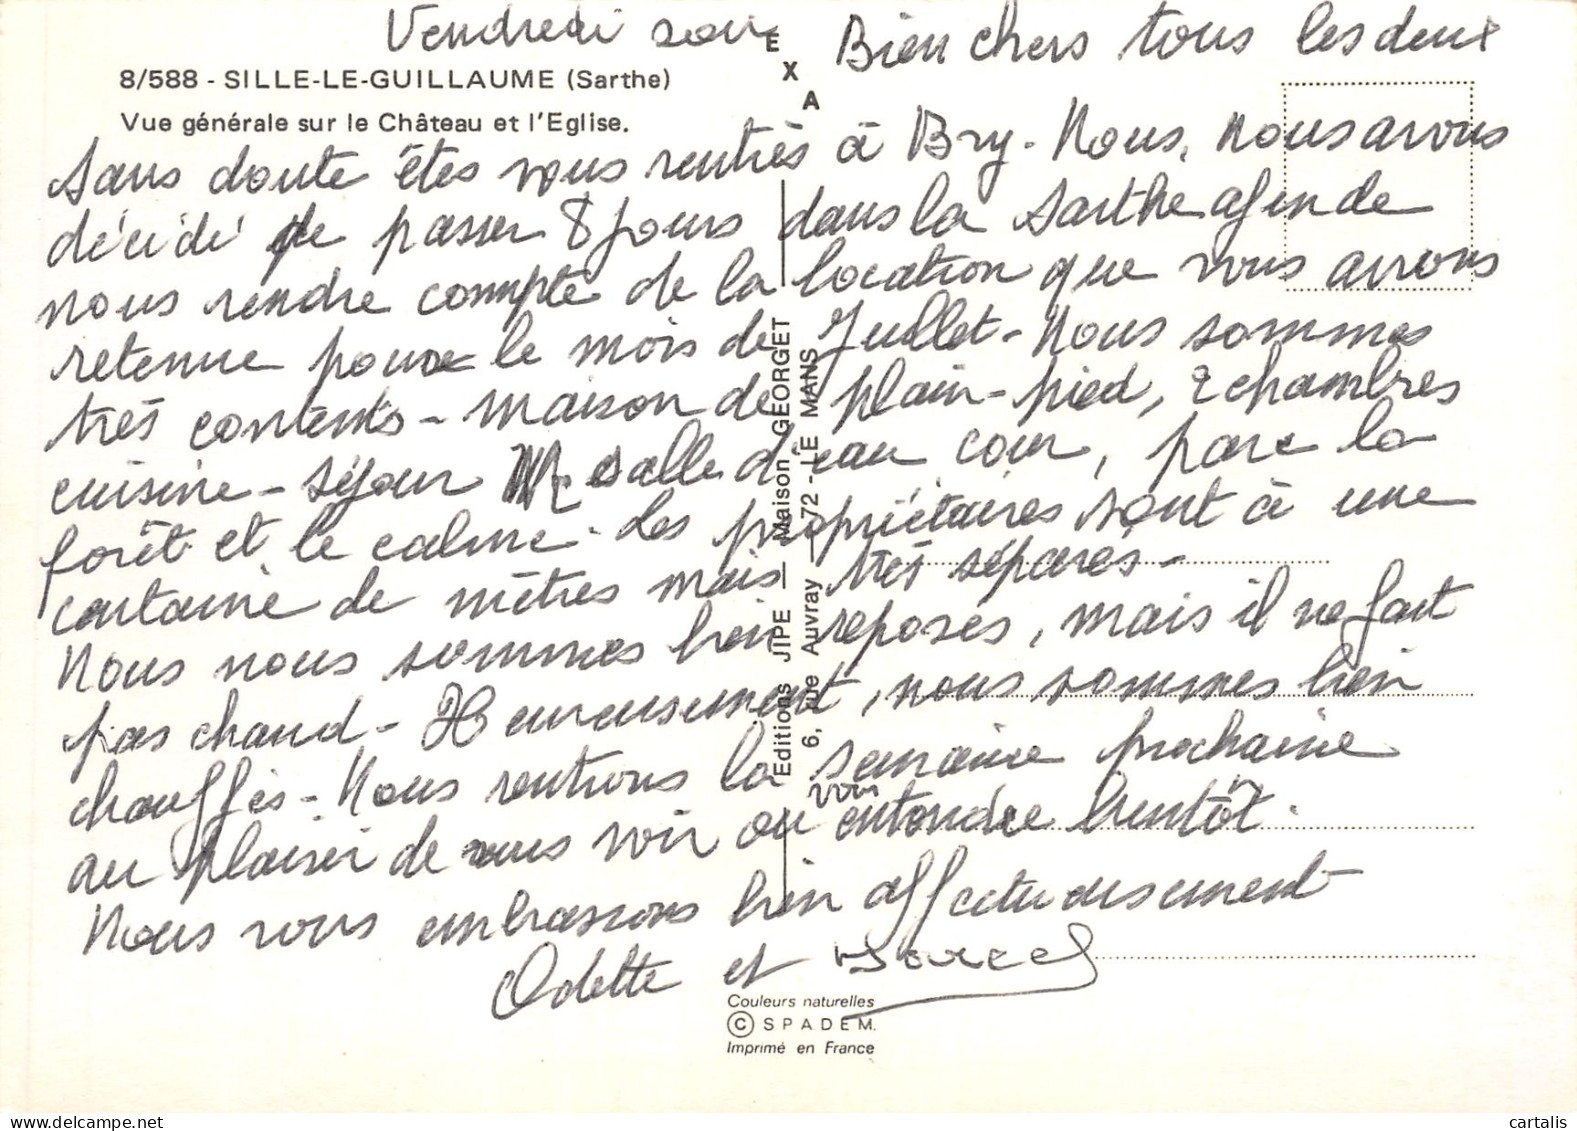 Vendredi soir
Bien chers tous les deux
E
X
A
8/588 - SILLE-LE-GUILLAUME (Sarthe)
Vue générale sur le Château et l'Eglise.
Sans doute êtes vous rentrés à Bry. Nous, nous avons
décidé de passer 8 jours dans la Sarthe afin de
nous rendre compte de la location que nous avons
retenue pour le mois de Juillet - Nous sommes
très contents - maison de plain-pied, 2 chambres
cuisine - séjour salle d'eau cour, parc la
forêt et le calme. Les propriétaires sont à une
centaine de mètres mais très séparés -
Nous nous sommes bien reposés, mais il ne fait
pas chaud - Heureusement, nous sommes bien
chauffés - Nous rentrons la semaine prochaine
au plaisir de vous voir ou vous entendre bientôt.
Nous vous embrassons bien affectueusement
Odette et Marcel
Editions JIPE — Maison GEORGET
6, rue Auvray — 72 - LE MANS
Couleurs naturelles
© SPADEM.
Imprimé en France
cartalis.com